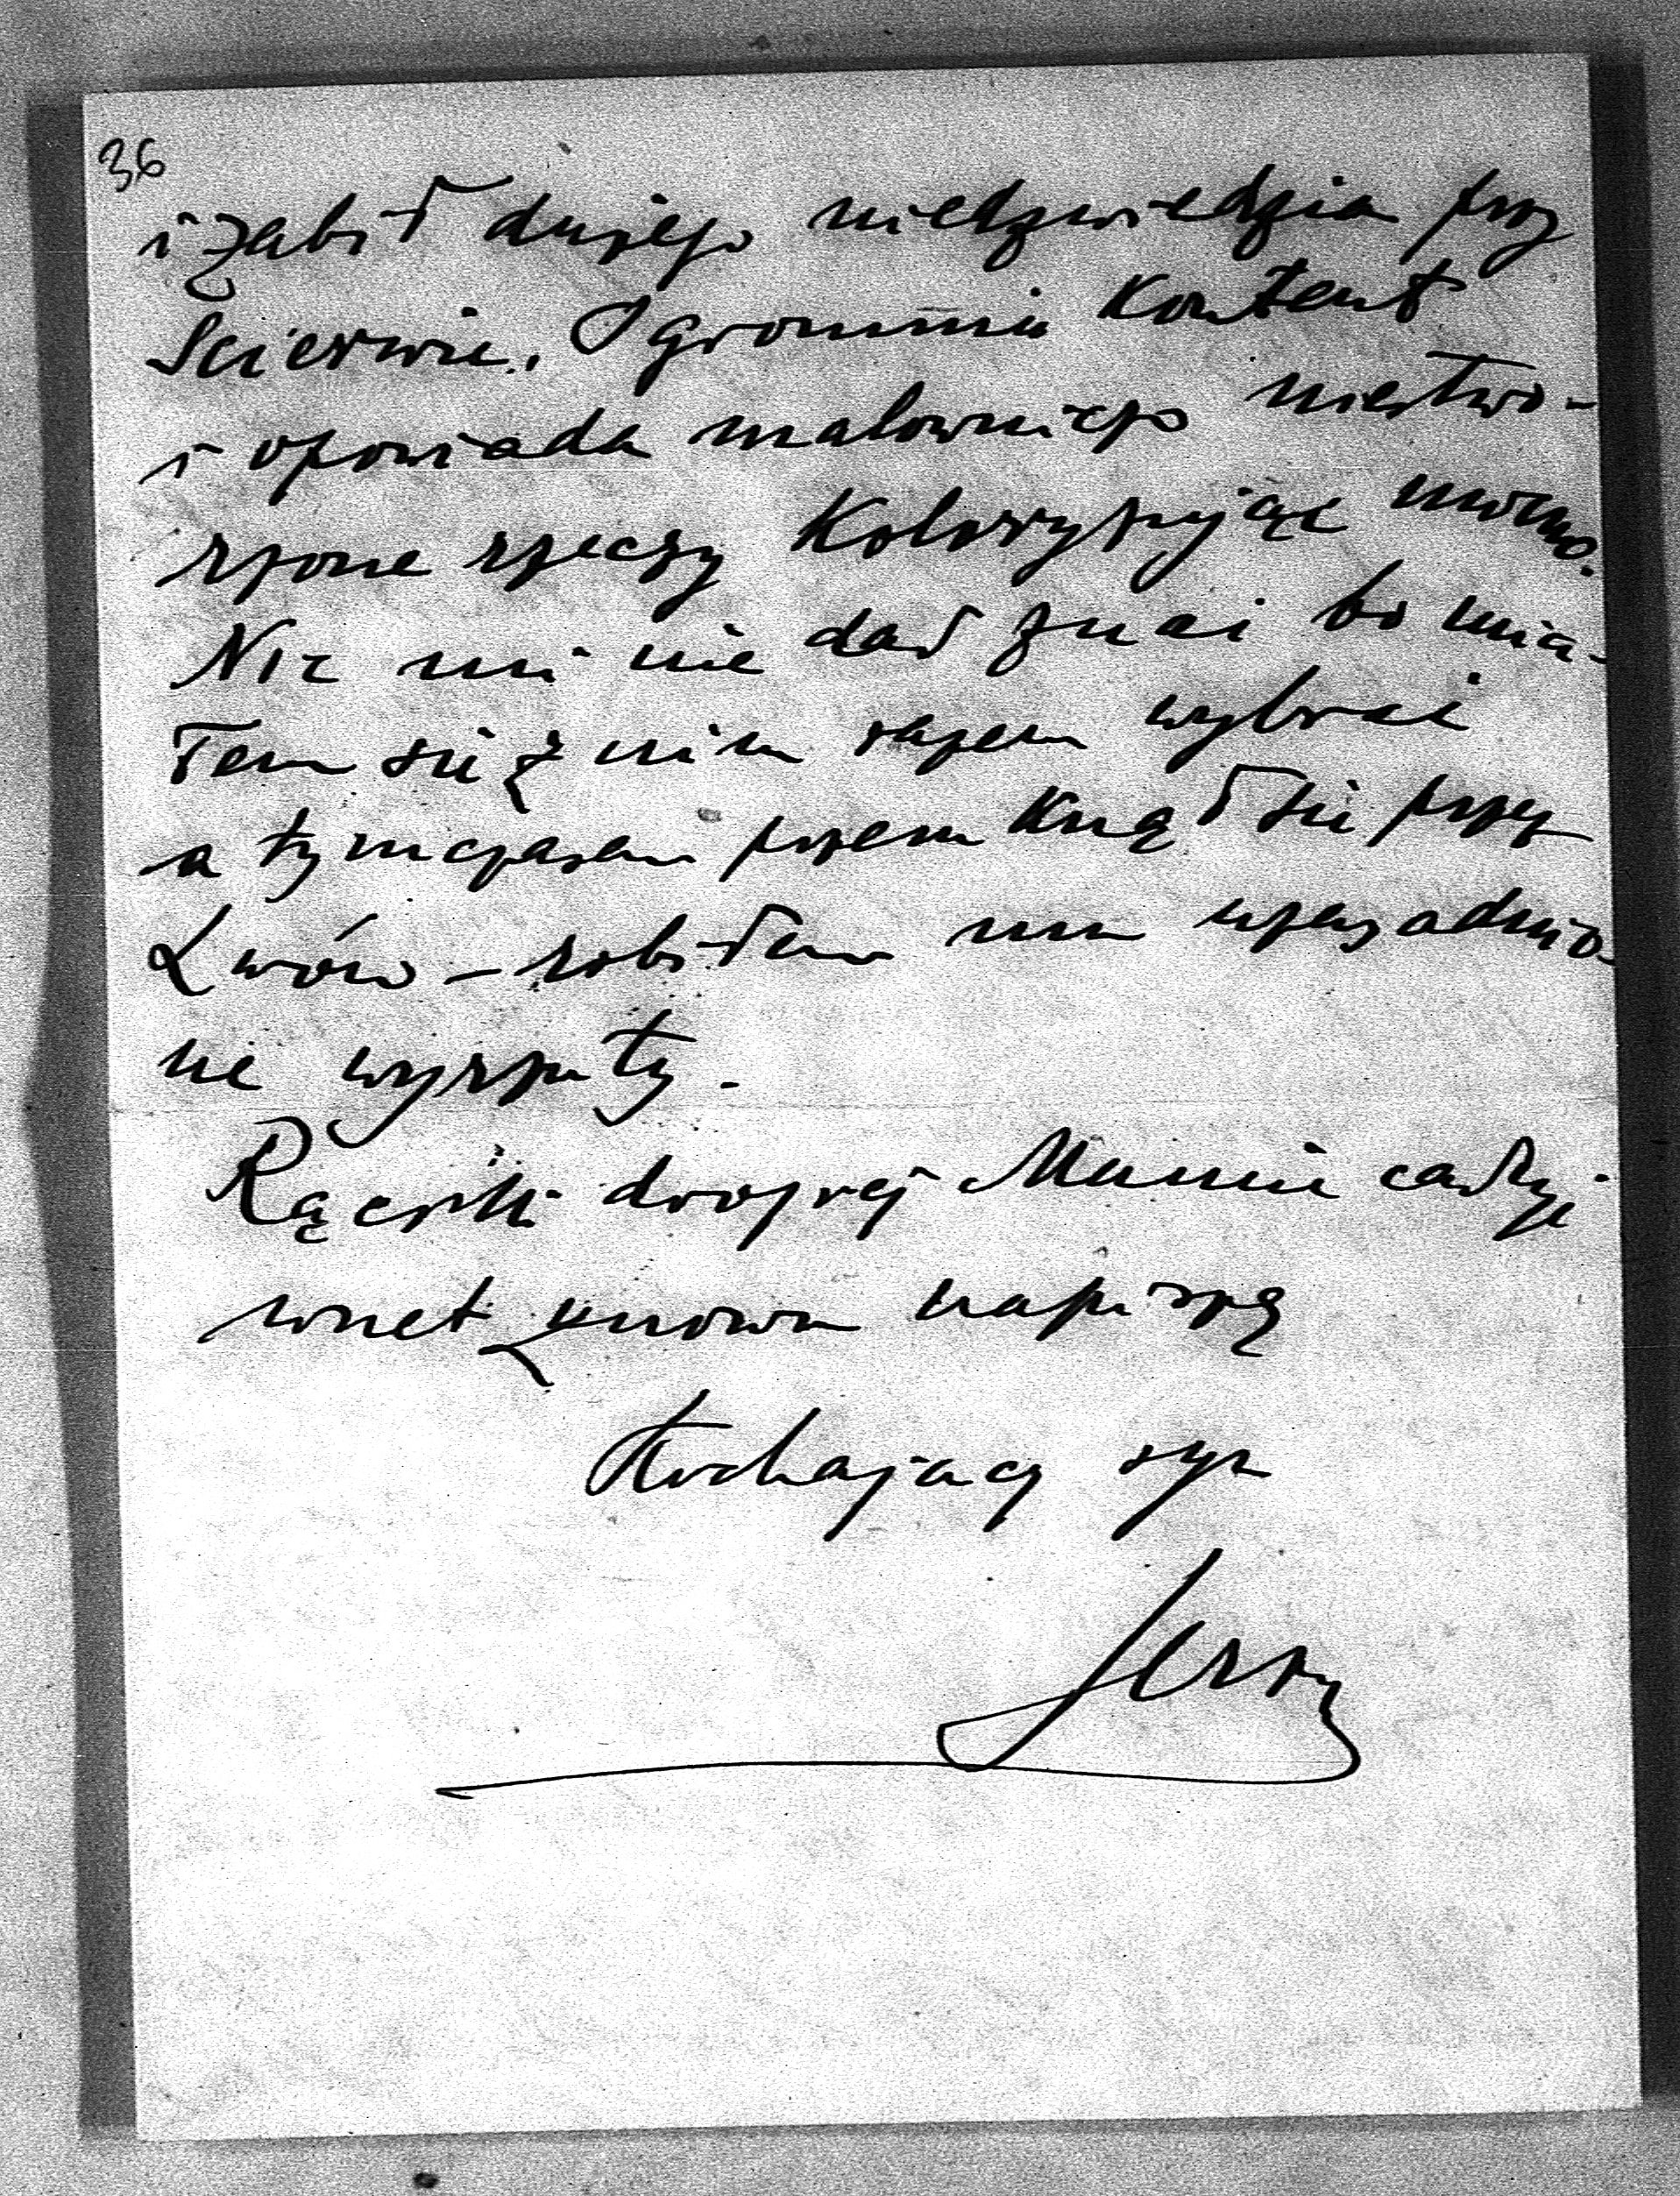 36
i zabił dużego niedzwiedzia przy
Scierwie. Ogromnie Kontent
i opowiada malowniczo niestwo-
rzone rzeczy Koloryzując mocno.
Nic mi nie dał znać bo mia-
łem się z nim razem wybrać
a tymczasem przemknął się przez
Lwów – robiłem mu uzasadnio-
ne wyrzuty.
Rączki drogiej Mamie całuję
wnet znowu napiszę
Kochający syn
Jerzy